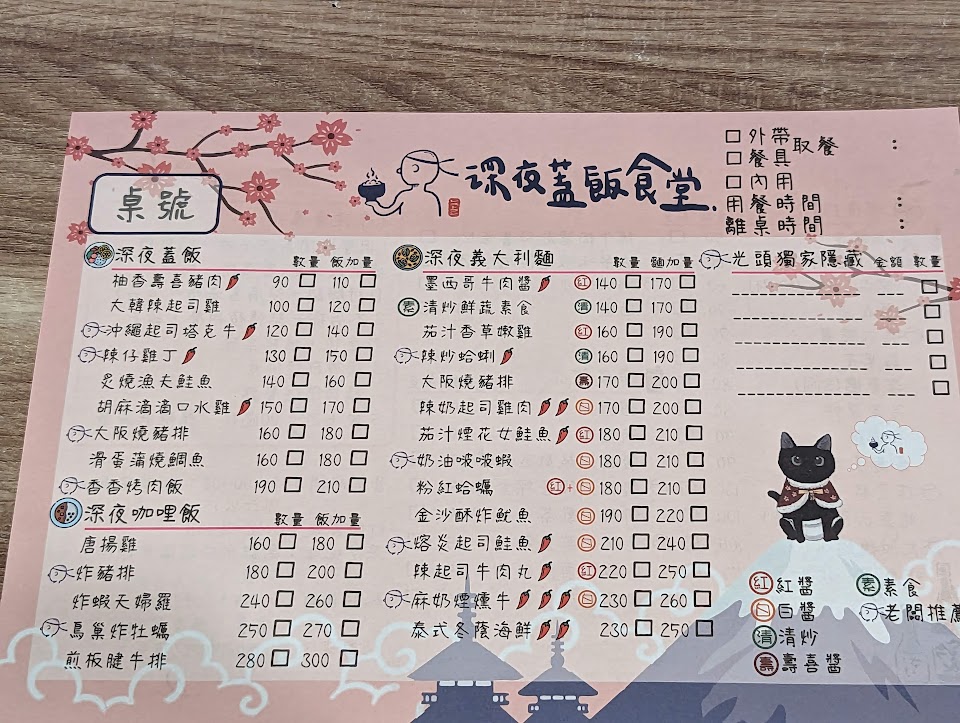 桌號
深夜蓋飯食堂
外帶 取餐 :
餐具
內用
用餐時間 :
離桌時間 :
深夜蓋飯 數量 飯加量
柚香壽喜豬肉 90 110
大韓辣起司雞 100 120
沖繩起司塔克牛 120 140
辣仔雞丁 130 150
炙燒漁夫鮭魚 140 160
胡麻滴滴口水雞 150 170
大阪燒豬排 160 180
滑蛋蒲燒鯛魚 160 180
香香烤肉飯 190 210
深夜咖哩飯 數量 飯加量
唐揚雞 160 180
炸豬排 180 200
炸蝦天婦羅 240 260
鳥巢炸牡蠣 250 270
煎板腱牛排 280 300
深夜義大利麵 數量 麵加量
墨西哥牛肉醬 紅 140 170
素 清炒鮮蔬素食 清 140 170
茄汁香草嫩雞 紅 160 190
辣炒蛤蜊 清 160 190
大阪燒豬排 壽 170 200
辣奶起司雞肉 白 170 200
茄汁煙花女鮭魚 紅 180 210
奶油啵啵蝦 白 180 210
粉紅蛤蠣 紅+白 180 210
金沙酥炸魷魚 白 190 220
熔炎起司鮭魚 白 210 240
辣起司牛肉丸 紅 220 250
麻奶煙燻牛 白 230 260
泰式冬蔭海鮮 230 250
光頭獨家隱藏 金額 數量
紅 紅醬
白 白醬
清 清炒
壽 壽喜醬
素 素食
老闆推薦